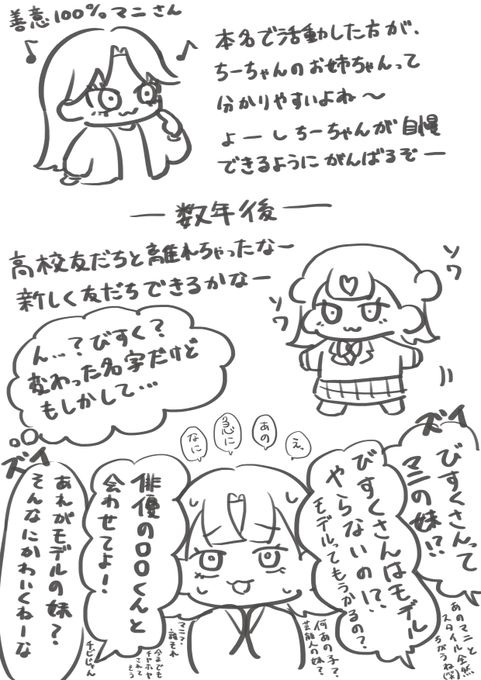 善意100%マニさん
本名で活動した方が、
ちーちゃんのお姉ちゃんって
分かりやすいよね〜
よーしちーちゃんが自慢
できるようにがんばるぞー
―数年後―
高校友だちと離れちゃったなー
新しく友だちできるかなー
ソワ
ソワ
ん…?びすく?
変わった名字だけど
もしかして…
え、
あの
急に
なに
ズイ
ズイ
びすくさんって
マニの妹!?
あのマニと
スタイル全然
ちがうね(笑)
びすくさんはモデル
やらないの!?
モデルってもうかるの?
何あの子?
芸能人の妹?
俳優の口口くんと
会わせてよ!
マニ?
誰それ
今までも
チヤホヤ
されてそう
あれがモデルの妹?
そんなにかわいくねーな
チビじゃん